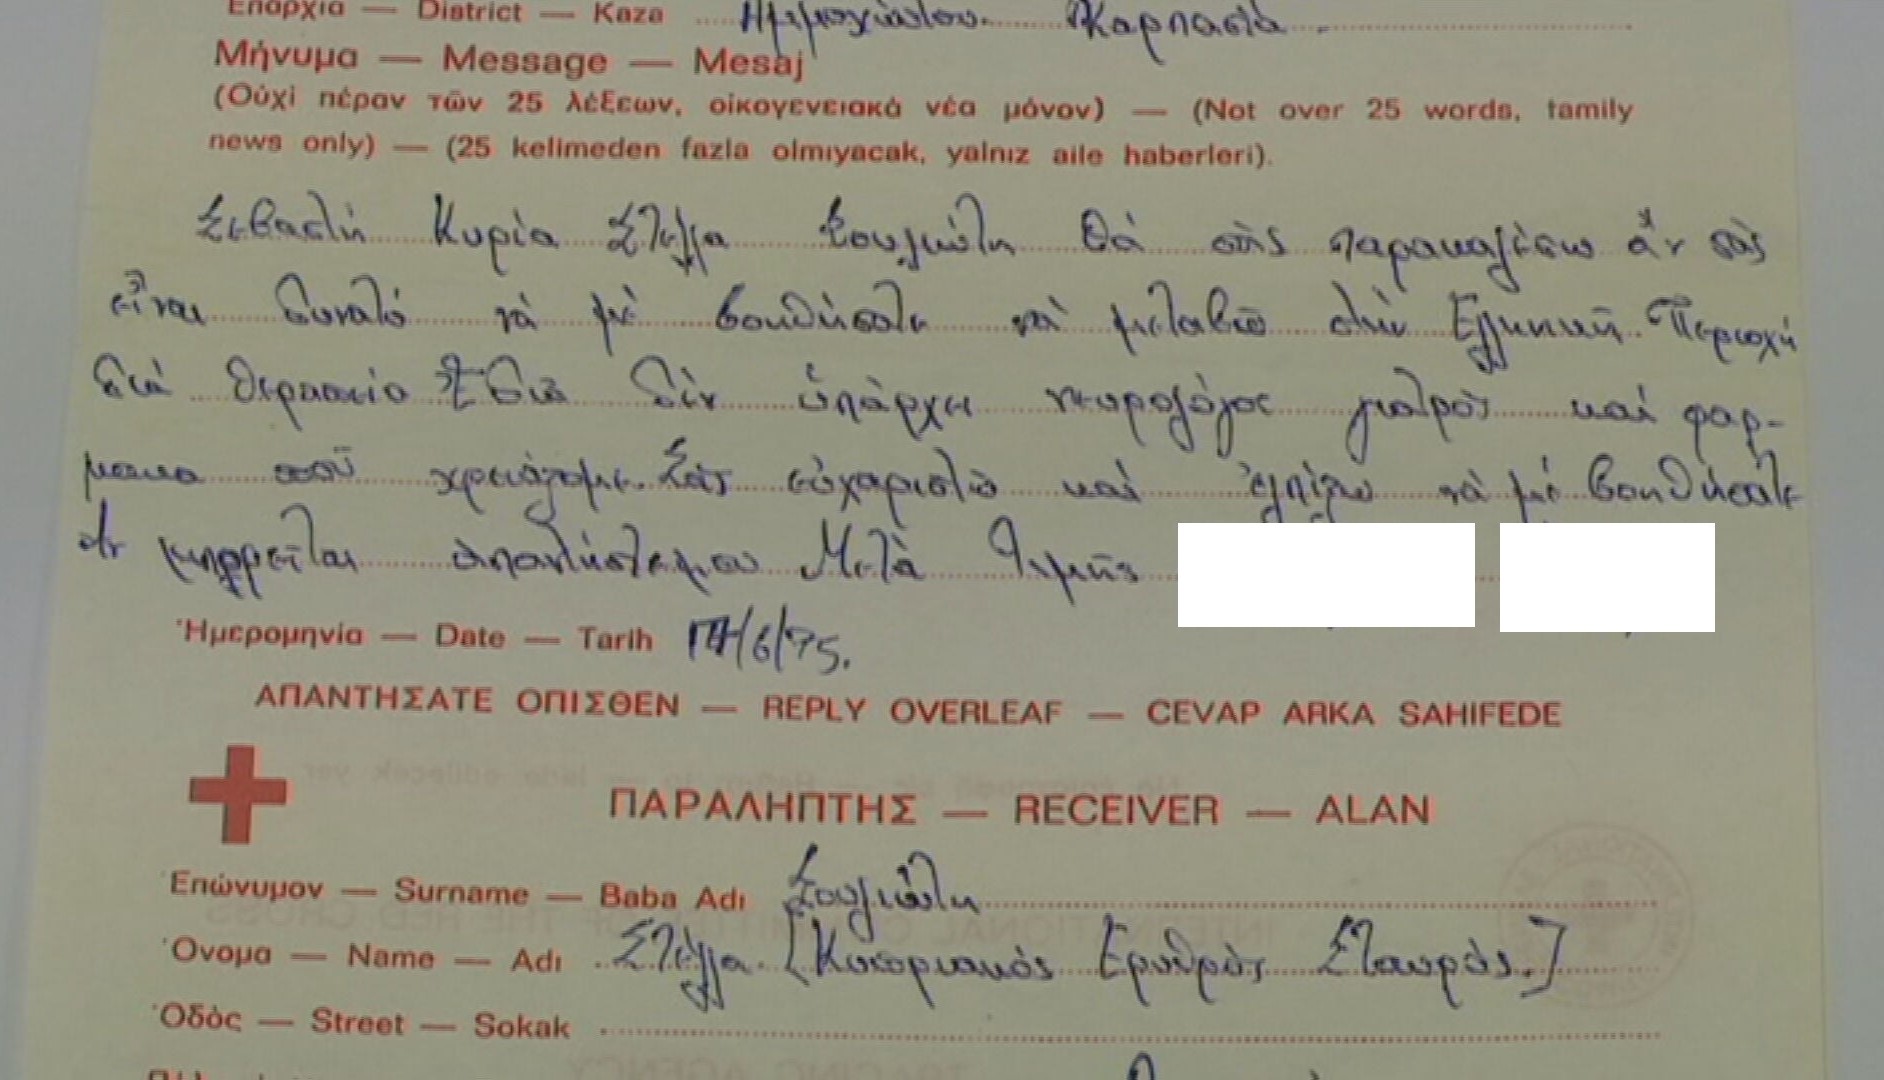 Ἐπαρχία — District — Kaza Ἀμμοχώστου. Καρπασία.
Μήνυμα — Message — Mesaj
(Οὐχὶ πέραν τῶν 25 λέξεων, οἰκογενειακά νέα μόνον) — (Not over 25 words, family
news only) — (25 kelimeden fazla olmıyacak, yalnız aile haberleri).
Σεβαστή Κυρία Στέλλα Σουλιώτη Θά σᾶς παρακαλέσω ἄν σᾶς
εἶναι δυνατό νά μέ βοηθήσατε νά μεταβῶ στήν Ἑλληνική Περιοχή
διά θεραπεία Ἐδῶ δέν ὑπάρχει νευρολόγος γιατρός καί φαρ-
μακα ποῦ χρειάζομε. Σᾶς εὐχαριστῶ καί ἐλπίζω νά μέ βοηθήσατε
Μετά Τιμῆς
Ἡμερομηνία — Date — Tarih /6/75.
ΑΠΑΝΤΗΣΑΤΕ ΟΠΙΣΘΕΝ — REPLY OVERLEAF — CEVAP ARKA SAHIFEDE
ΠΑΡΑΛΗΠΤΗΣ — RECEIVER — ALAN
Ἐπώνυμον — Surname — Baba Adı Σουλιώτη
Ὄνομα — Name — Adı Στέλλα. [Κυπριακός Ερυθρός Σταυρός.]
Ὁδὸς — Street — Sokak